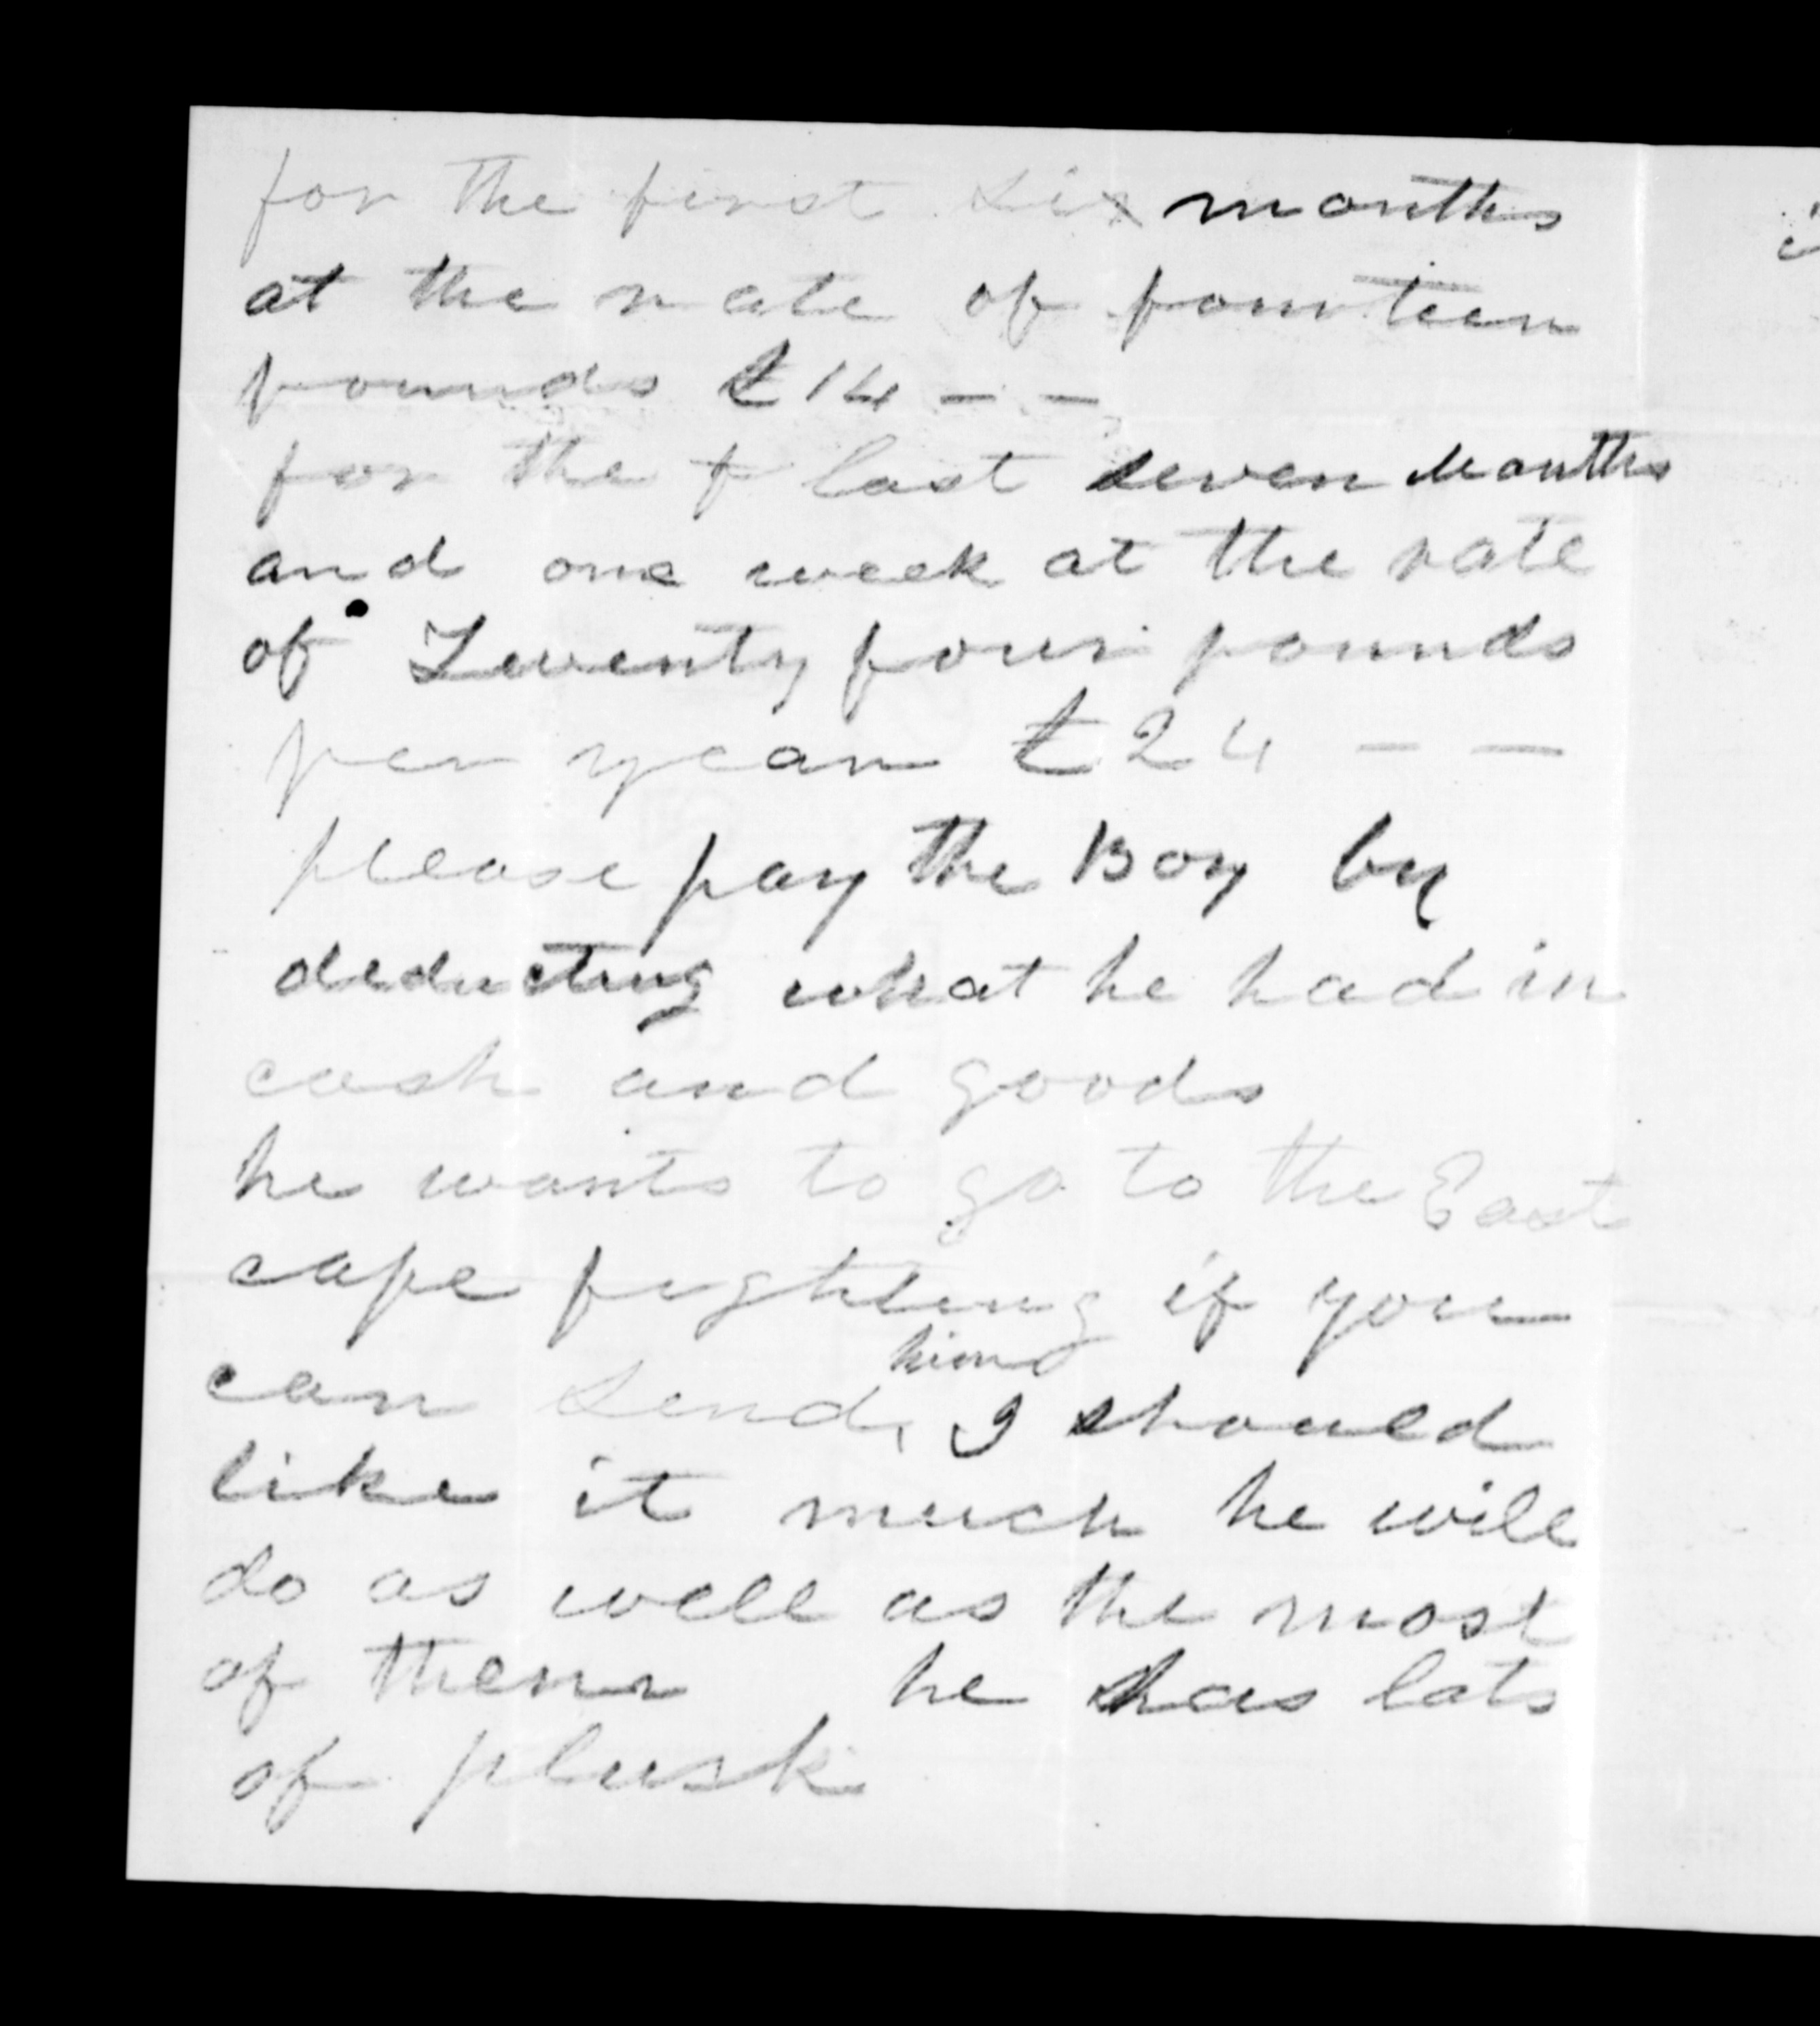 for the first six months
at the rate of fourteen
pounds £14 – –
for the f last seven Months
and one week at the rate
of Twenty four pounds
per year £24 – –
please pay the Boy by
deducting what he had in
cash and goods
he wants to go to the East
cape fighting if you
him
can send, I should
like it much he will
do as well as the most
of them he has lots
of plusk